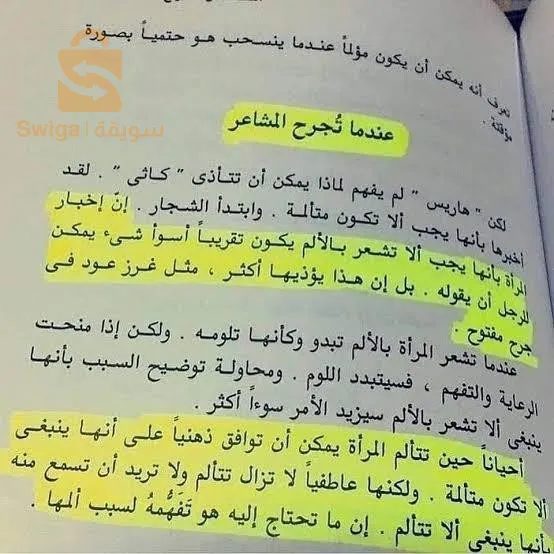 تعرف أنه يمكن أن يكون مؤلماً عندما ينسحب هو حتمياً بصورة
مؤقتة .
سويقة | Swiga
عندما تُجرح المشاعر
لكن " هاريس " لم يفهم لماذا يمكن أن تتأذى " كاثى " . لقد
أخبرها بأنها يجب ألا تكون متألمة . وابتدأ الشجار . إنّ إخبار
المرأة بأنها يجب ألا تشعر بالألم يكون تقريباً أسوأ شىء يمكن
للرجل أن يقوله . بل إن هذا يؤذيها أكثر ، مثل غرز عود فى
جرح مفتوح .
عندما تشعر المرأة بالألم تبدو وكأنها تلومه . ولكن إذا منحت
الرعاية والتفهم ، فسيتبدد اللوم . ومحاولة توضيح السبب بأنها
ينبغى ألا تشعر بالألم سيزيد الأمر سوءاً أكثر .
أحياناً حين تتألم المرأة يمكن أن توافق ذهنياً على أنها ينبغى
ألا تكون متألمة . ولكنها عاطفياً لا تزال تتألم ولا تريد أن تسمع منه
بأنها ينبغى ألا تتألم . إن ما تحتاج إليه هو تَفَهُّمهُ لسبب ألمها .